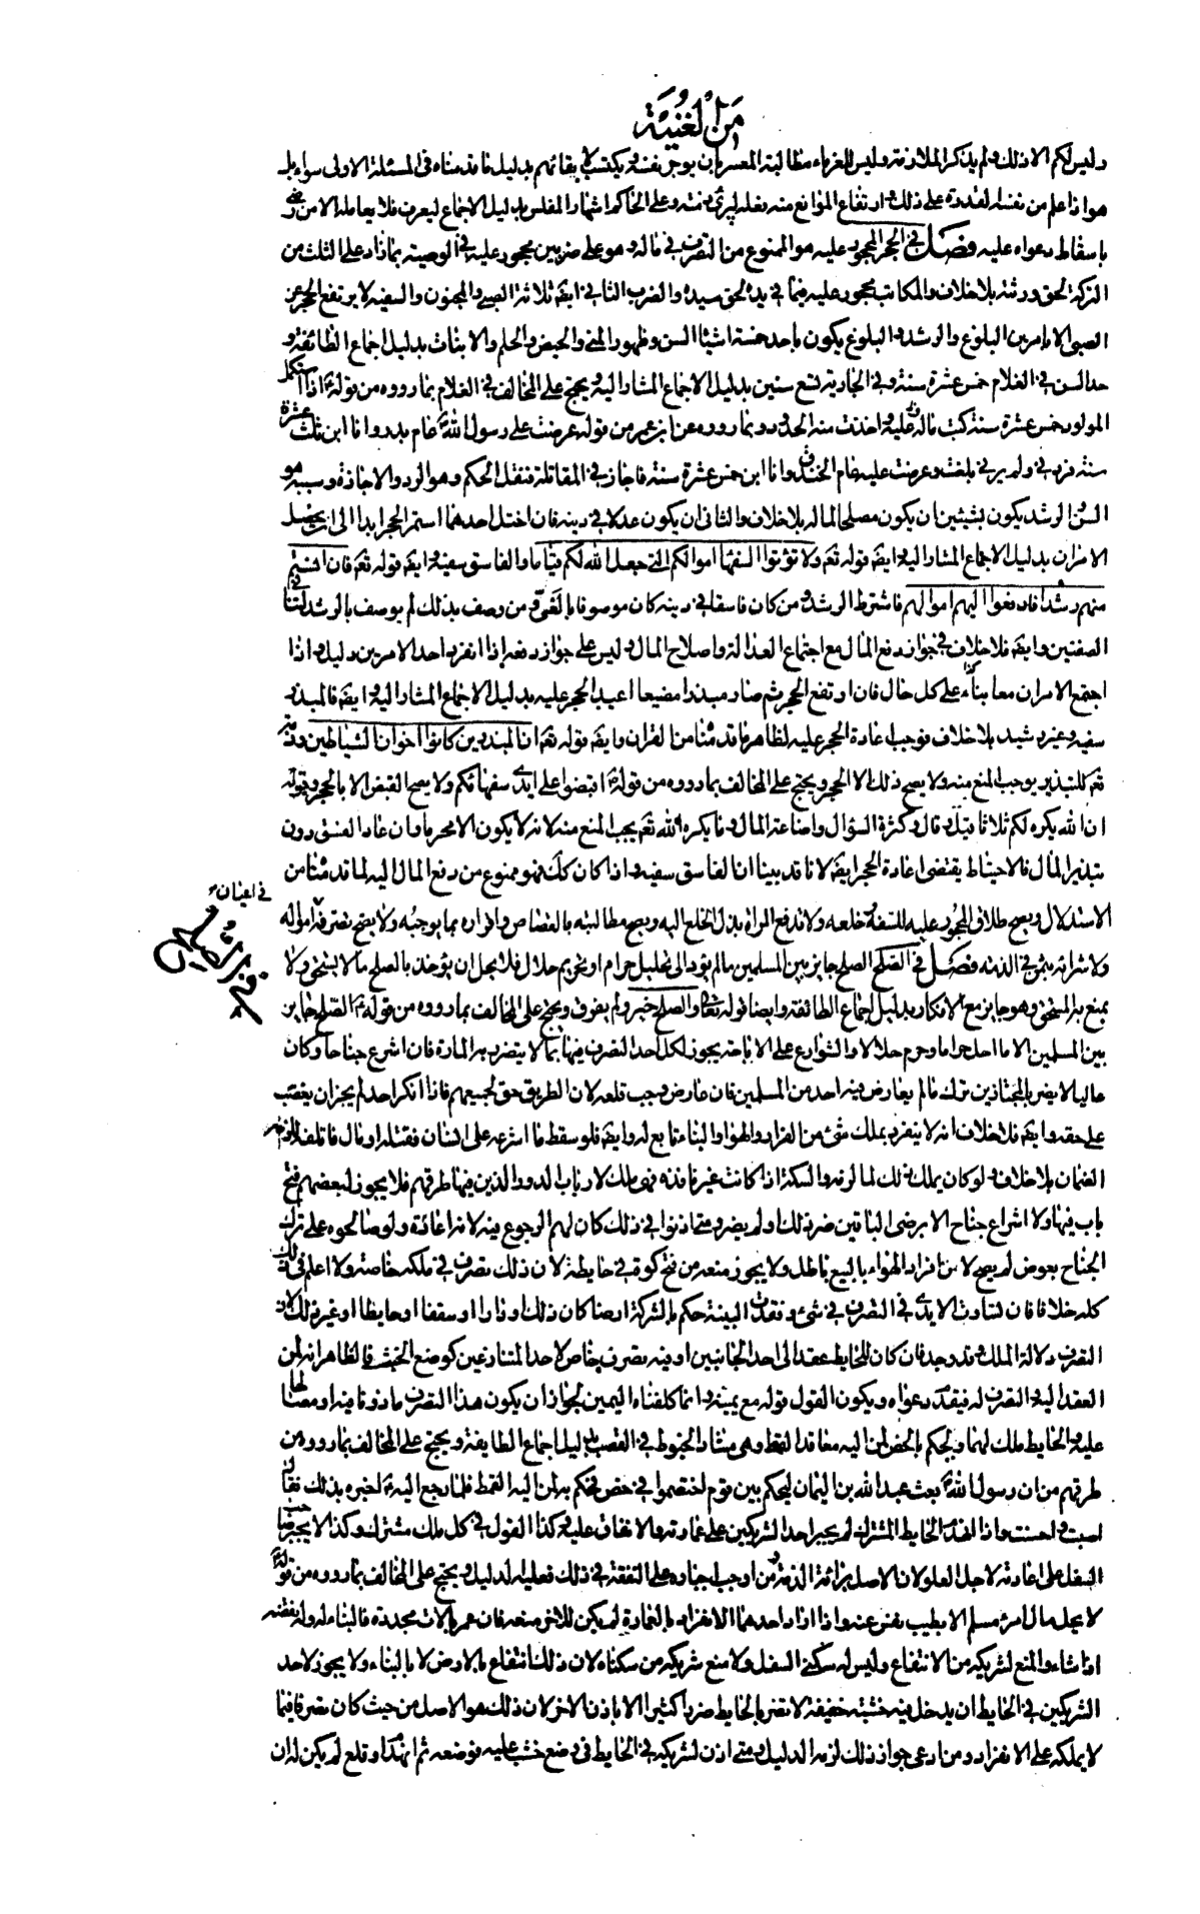 من الغنية
وليس لكم الا ذلك ولم يذكر الملازمة وليس للغرماء مطالبة المعسر بان يوجر نفسه ويكتسب لايفائهم بدليل ما قدمناه في المسئلة الاولى سواء بل
هو اذا علم من نفسه القدرة على ذلك وارتفاع الموانع منه فعله ليبرئ ذمته وعلى الحاكم اشهار المفلس بدليل الاجماع ليعرف فلا يعامله الا من رضي
باسقاط دعواه عليه فصل في الحجر المحجور عليه هو الممنوع من التصرف في ماله وهو على ضربين محجور عليه في الوصية بما زاد على الثلث من
التركة لحق ورثته بلا خلاف والمكاتب محجور عليه فيما في يده لحق سيده والضرب الثاني ايضا ثلاثة الصبي والمجنون والسفيه لا يرتفع الحجر عن
الصبي الا بامرين البلوغ والرشد والبلوغ يكون باحد خمسة اشياء السن وظهور المني والحيض والحلم والانبات بدليل اجماع الطائفة و
حد السن في الغلام خمس عشرة سنة وفي الجارية تسع سنين بدليل الاجماع المشار اليه ويحتج على المخالف في الغلام بما رووه من قوله ع اذا استكمل
المولود خمس عشرة سنة كتب ماله وعليه واخذت منه الحدود وبما رووه عن ابن عمر من قوله عرضت على رسول الله ص عام بدر وانا ابن ثلث عشرة
سنة فردني ولم يرني بلغت وعرضت عليه عام الخندق وانا ابن خمس عشرة سنة فاجازني في المقاتلة فنقل الحكم وهو الرد والاجازة وسببه هو
السن والرشد يكون بشيئين ان يكون مصلحا لماله بلا خلاف والثاني ان يكون عدلا في دينه فان اختل احدهما استمر الحجر ابدا الى ان يحصل
الامران بدليل الاجماع المشار اليه وايضا قوله تعم ولا تؤتوا السفهاء اموالكم التي جعل الله لكم قياما والفاسق سفيه وايضا قوله تعم فان انستم
منهم رشدا فادفعوا اليهم اموالهم فاشترط الرشد ومن كان فاسقا في دينه كان موصوفا بالغي ومن وصف بذلك لم يوصف بالرشد لتنافي
الصفتين وايضا فلا خلاف في جواز دفع المال مع اجتماع العدالة واصلاح المال وليس على جواز دفعه اذا انفرد احد الامرين دليل واذا
اجتمع الامران معا بناء على كل حال فان ارتفع الحجر ثم صار مبذرا مضيعا اعيد الحجر عليه بدليل الاجماع المشار اليه وايضا فالمبذر
سفيه وغير رشيد بلا خلاف فوجب اعادة الحجر عليه لظاهر ما قدمناه من القران وايضا قوله تعم ان المبذرين كانوا اخوان الشياطين وذمه
تعم للتبذير يوجب المنع منه ولا يصح ذلك الا الحجر ويحتج على المخالف بما رووه من قوله ع اقبضوا على ايدي سفهائكم ولا يصح القبض الا بالحجر وقوله
ان الله يكره لكم ثلاثا قيل وقال وكثرة السؤال واضاعة المال وما يكرهه الله تعم يجب المنع منه لانه لا يكون الا محرما وان عاد الفسق دون
تبذير المال فالاحتياط يقتضي اعادة الحجر ايضا لانا قد بينا ان الفاسق سفيه واذا كان كك فهو ممنوع من دفع المال اليه لما قدمنا من
في اعيان
الاستدلال ويصح طلاق المحجور عليه للسفه وخلعه ولا تدفع المراة بدل الخلع اليه ويصح مطالبته بالقصاص واقراره بما يوجبه ولا يصح تصرفه امواله
ولا شرائه بثمن في الذمة فصل في الصلح الصلح جايز بين المسلمين ما لم يؤد الى تحليل حرام او تحريم حلال فلا يحل ان يؤخذ بالصلح ما لا يستحق ولا
في الصلح
يمنع به المستحق وهو جايز مع الانكار بدليل اجماع الطائفة وايضا قوله تعالى والصلح خير ولم يفرق ويحتج على المخالف بما رووه من قوله ع الصلح جايز
بين المسلمين الا ما احل حراما وحرم حلالا والشوارع على الاباحة يجوز لكل احد التصرف فيها بما لا يتضرر به المارة فان اشرع جناحا وكان
عاليا لا يضر بالمجتازين ترك ما لم يعارض فيه احد من المسلمين فان عارض وجب قلعه لان الطريق حق لجميعهم فاذا انكر احد لم يجز ان يغصب
على حقه وايضا فلا خلاف انه لا ينفرد بملك شئ من القرار والهواء والبناء تابع له وايضا فلو سقط ما اشرعه على انسان فقتله او مال فاتلفه للزمه
الضمان بلا خلاف ولو كان يملك ذلك لما لزمه والسكة اذا كانت غير نافذة فهي ملك لارباب الدور الذين فيها طرقهم فلا يجوز لبعضهم فتح
باب فيها ولا اشراع جناح الا برضى الباقين ضر ذلك او لم يضر ومتى اذنوا في ذلك كان لهم الرجوع فيه لانه اعارة ولو صالحوه على ترك
الجناح بعوض لم يصح لان افراد الهواء بالبيع باطل ولا يجوز منعه من فتح كوة في حايطه لان ذلك تصرف في ملكه خاصة ولا اعلم في ذلك
كله خلافا فان تساوت الايدي في التصرف في شئ وفقدت البينة حكم بالشركة ارضا كان ذلك او دارا او سقفا او حايطا او غير ذلك لان
التصرف دلالة الملك وقد وجد فان كان للحايط عقد الى احد الجانبين او فيه تصرف خاص لاحد المتنازعين كوضع الخشب فالظاهر انه لمن
العقد اليه والتصرف له فيقدم دعواه ويكون القول قوله مع يمينه وانما كلفناه اليمين لجواز ان يكون هذا التصرف ماذونا فيه او مصالحا
عليه والحايط ملك لهما ويحكم بالخص لمن اليه معاقد القمط وهي مشاد الخيوط في القصب بدليل اجماع الطايفة ويحتج على المخالف بما رووه من
طرقهم من ان رسول الله ص بعث عبد الله بن اليمان ليحكم بين قوم اختصموا في خص فحكم به لمن اليه القمط فلما رجع اليه ع اخبره بذلك فقال له
اصبت واحسنت واذا انهدم الحايط المشترك لم يجبر احد الشريكين على عمارته والانفاق عليه وكذا القول في كل ملك مشترك وكذا لا يجبر صاحب
السفل على اعادته لاجل العلو لان الاصل براءة الذمة ومن اوجب اجباره على النفقة في ذلك فعليه الدليل ويحتج على المخالف بما رووه من قوله
لا يحل مال امرئ مسلم الا بطيب نفس عنه واذا اراد احدهما الانفراد بالعمارة لم يكن للاخر منعه فان عمر بالات مجددة فالبناء له وله نقضه
اذا شاء والمنع لشريكه من الانتفاع وليس له سكنى السفل ولا منع شريكه من سكناه لان ذلك انتفاع بالارض لا بالبناء ولا يجوز لاحد
الشريكين في الحايط ان يدخل فيه خشبة خفيفة لا تضر بالحايط ضررا كثيرا الا باذن الاخر لان ذلك هو الاصل من حيث كان تصرفا فيما
لا يملكه على الانفراد ومن ادعى جواز ذلك لزمه الدليل ومتى اذن لشريكه في الحايط في وضع خشب عليه فوضعه ثم انهدم او قلع لم يكن له ان